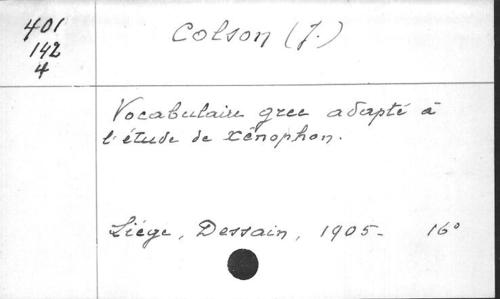 401
142
4
Colson (J.)
Vocabulaire grec adapté à
l'étude de Xénophon.
Liége, Dessain, 1905- 16°